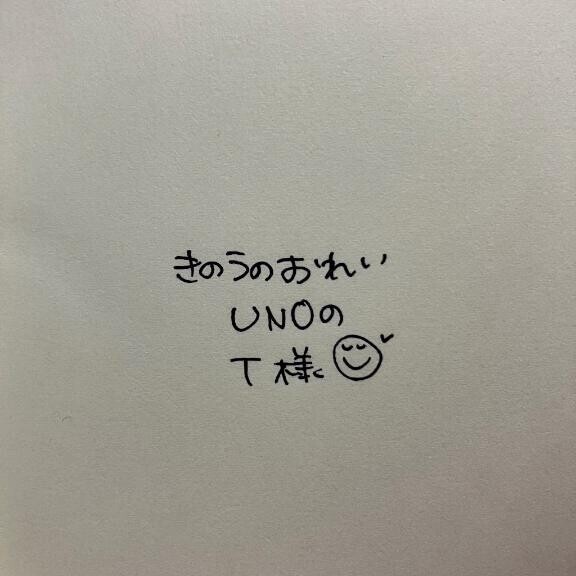 きのうのおれい
UNOの
T様